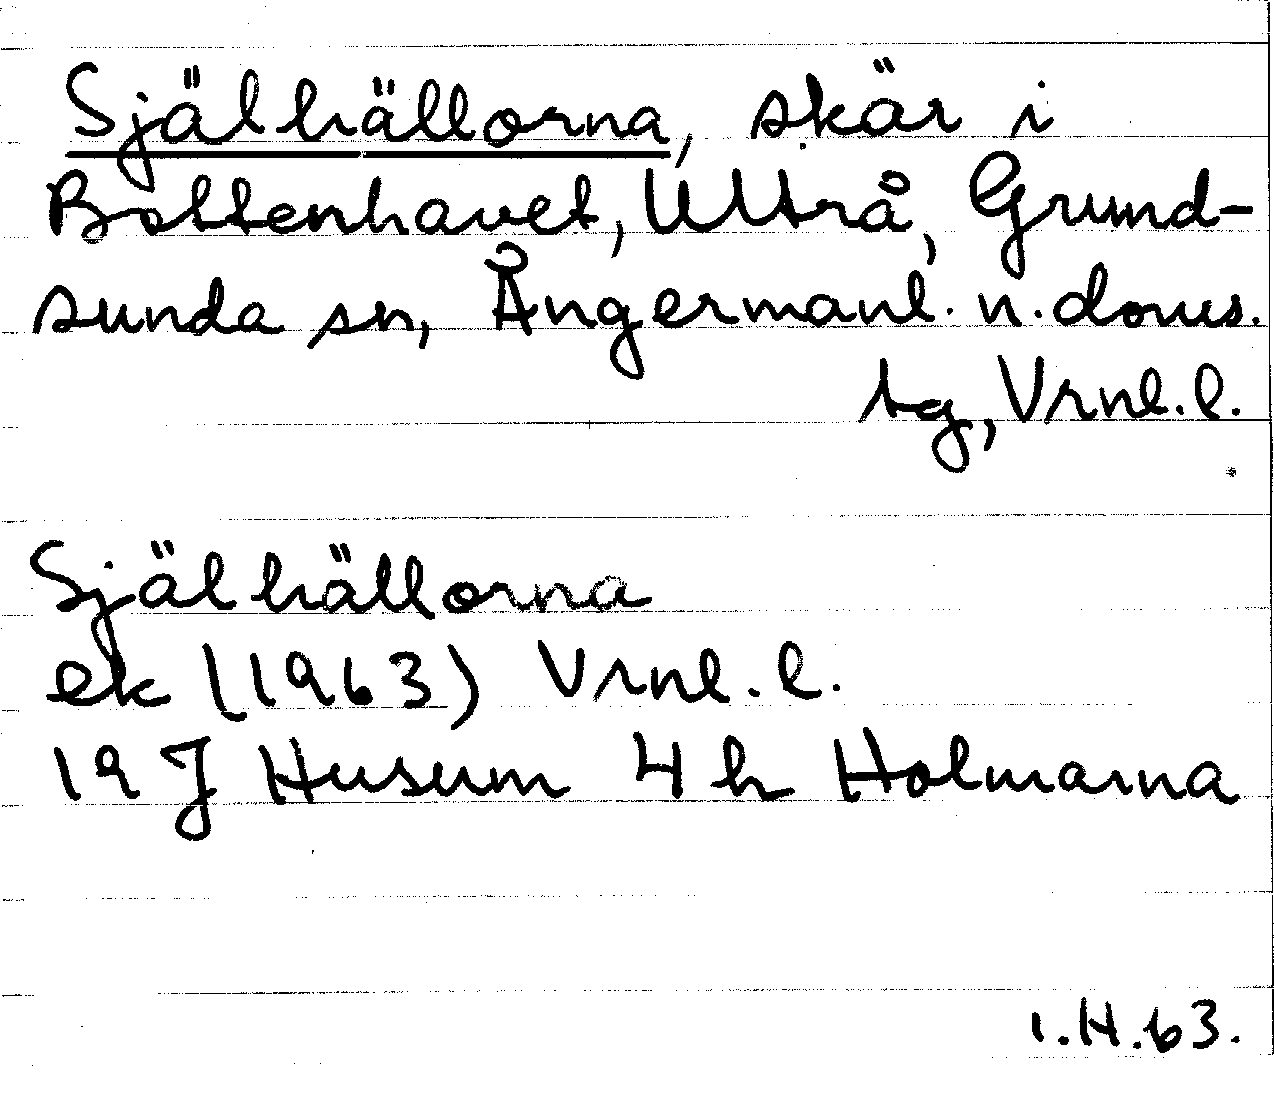 Själhällorna, skär i
Bottenhavet, Ultrå, Grund-
sunda sn, Ångermanl. n. doms.
tg, Vrnl. l.
Själhällorna
ek (1963) Vrnl. l.
19 J Husum 4 h Holmarna
I.H.63.